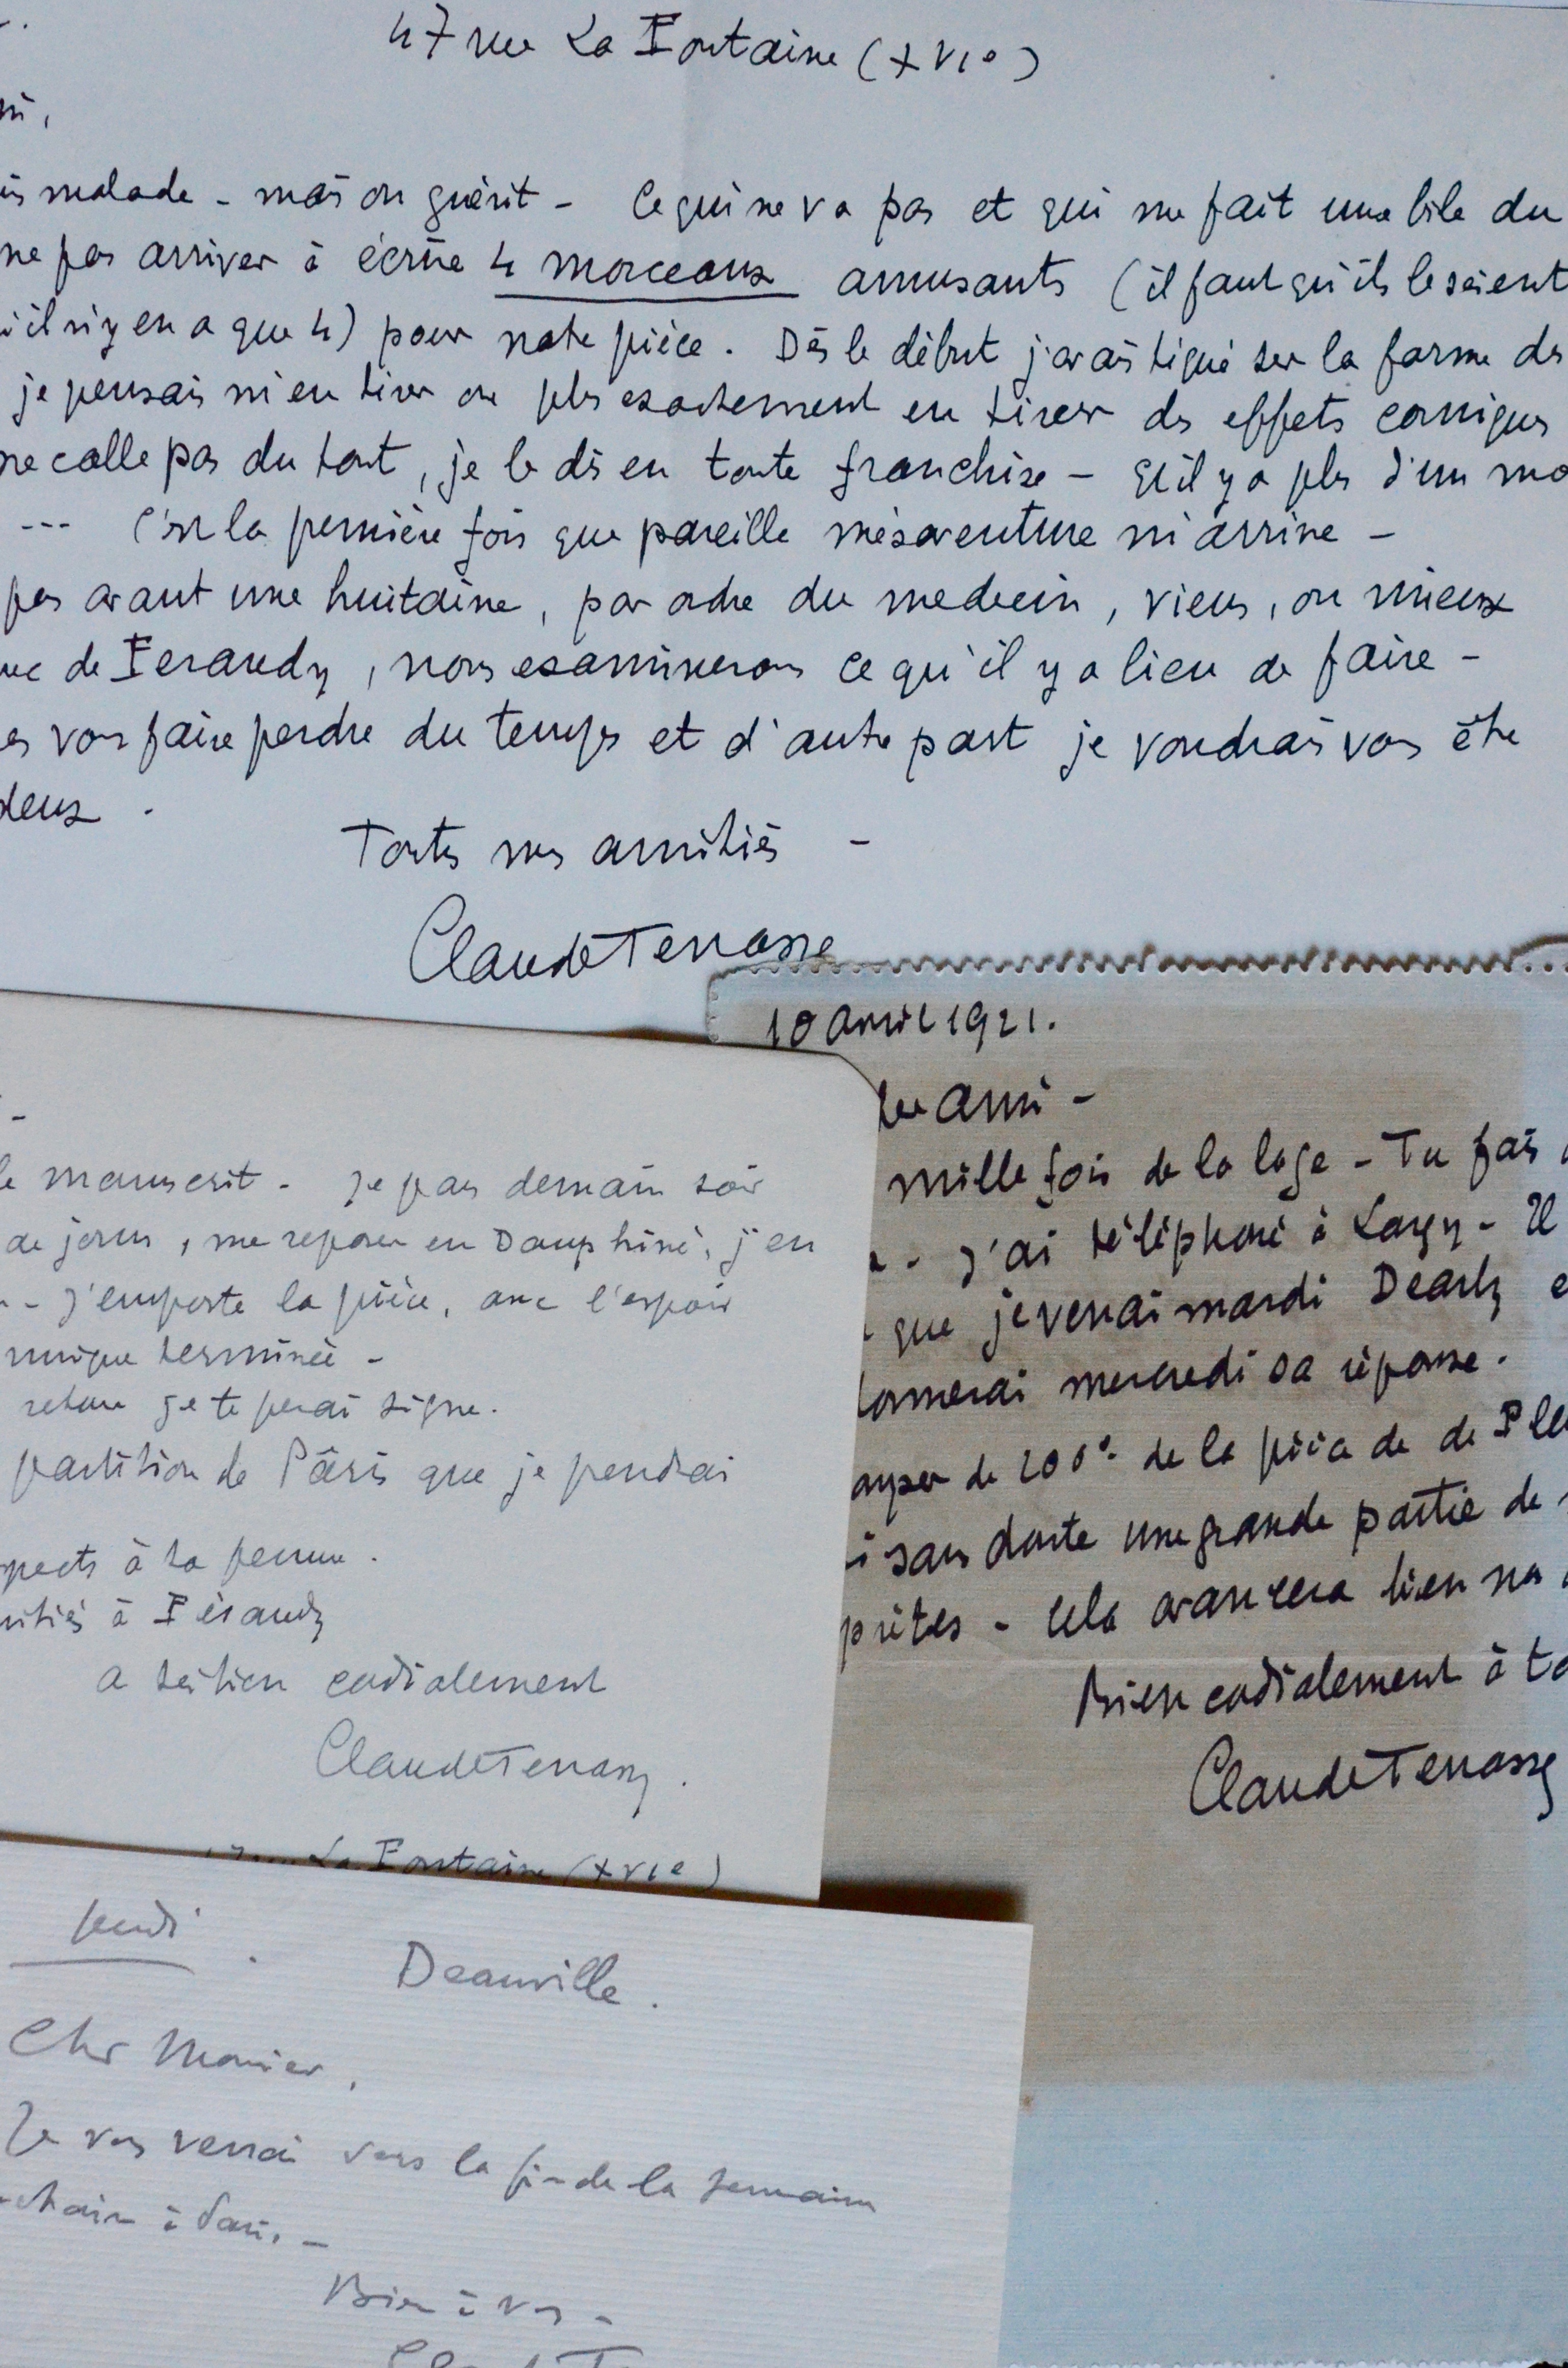 47 rue La Fontaine (XVIe)
malade - mais on guérit - Ce qui ne va pas et qui me fait une bile du
ne pas arriver à écrire 4 morceaux amusants (il faut qu'ils le soient
il n'y en a que 4) pour notre pièce. Dès le début j'avais tiqué sur la forme de
je pensais m'en tirer ou plus exactement en tirer des effets comiques
ne colle pas du tout, je le dis en toute franchise - qu'il y a plus d'un mo
--- C'est la première fois que pareille mésaventure m'arrive -
pas avant une huitaine, par ordre du medecin, viens, ou mieux
de Feraudy, nous examinerons ce qu'il y a lieu de faire -
vous faire perdre du temps et d'autre part je voudrais vous être
deux.
Toutes mes amitiés -
Claude Terrasse
10 avril 1921.
ami -
mille fois de la loge - Tu fais
- J'ai téléphoné à Lagy - Il
que je verrai mardi Dearly
donnerai mercredi sa réponse.
de la pièce de de Fle
sans doute une grande partie de
prêtes - Cela avancera bien nos
Bien cordialement à to
Claude Terrasse
le manuscrit - Je pars demain soir
de jours, me reposer en Dauphiné, j'en
- J'emporte la pièce, avec l'espoir
musique terminée -
retour je te ferai signe.
partition de Pâris que je prendrai
pects à ta femme.
amitiés à Féraudy
à toi bien cordialement
Claude Terrasse.
La Fontaine (XVIe)
Jeudi. Deauville.
Cher Monsieur,
Je vous verrai vers la fin de la semaine
chaine à Paris -
Bien à vous -